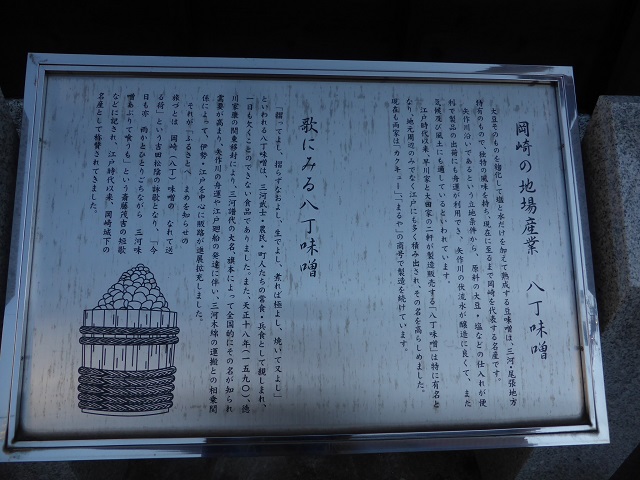 岡崎の地場産業　八丁味噌
大豆そのものを麹化して塩と水だけを加えて熟成する豆味噌は、三河・尾張地方
特有のもので、独特の風味を持ち、現在に至るまで岡崎を代表する名産です。
矢作川沿いであるという立地条件から、原料の大豆・塩などの仕入れが便
利で製品の出荷にも舟運が利用でき、矢作川の伏流水が醸造に良くて、また
気候及び風土にも適しているといわれています。
江戸時代以来、早川家と太田家の二軒が製造販売する「八丁味噌」は特に有名と
なり、地元周辺のみでなく江戸にも多く積み出され、その名を高らしめました。
現在も両家は「カクキュー」「まるや」の商号で製造を続けています。
歌にみる八丁味噌
「摺ってよし、摺らずなおよし、生でよし、煮れば極よし、焼いて又よし」
といわれる八丁味噌は、三河武士・農民・町人たちの常食・兵食として親しまれ、
一日も欠くことのできない食品でありました。また、天正十八年（一五九〇）、徳
川家康の関東移封により、三河譜代の大名・旗本によって全国的にその名が知られ
需要が高まり、矢作川の舟運や江戸廻船の発達に伴い、三河木綿の運搬との相乗関
係によって、伊勢・江戸を中心に販路が進展拡充しました。
それが「ふるさとへ　まめを知らせの
旅づとは　岡崎（八丁）味噌の　なれて送
る荷」という吉田松陰の詠歌となり、「今
日も亦　雨かとひとりごちながら　三河味
噌あぶりて喰うも」という斎藤茂吉の短歌
などに記され、江戸時代以来、岡崎城下の
名産として称賛されてきました。